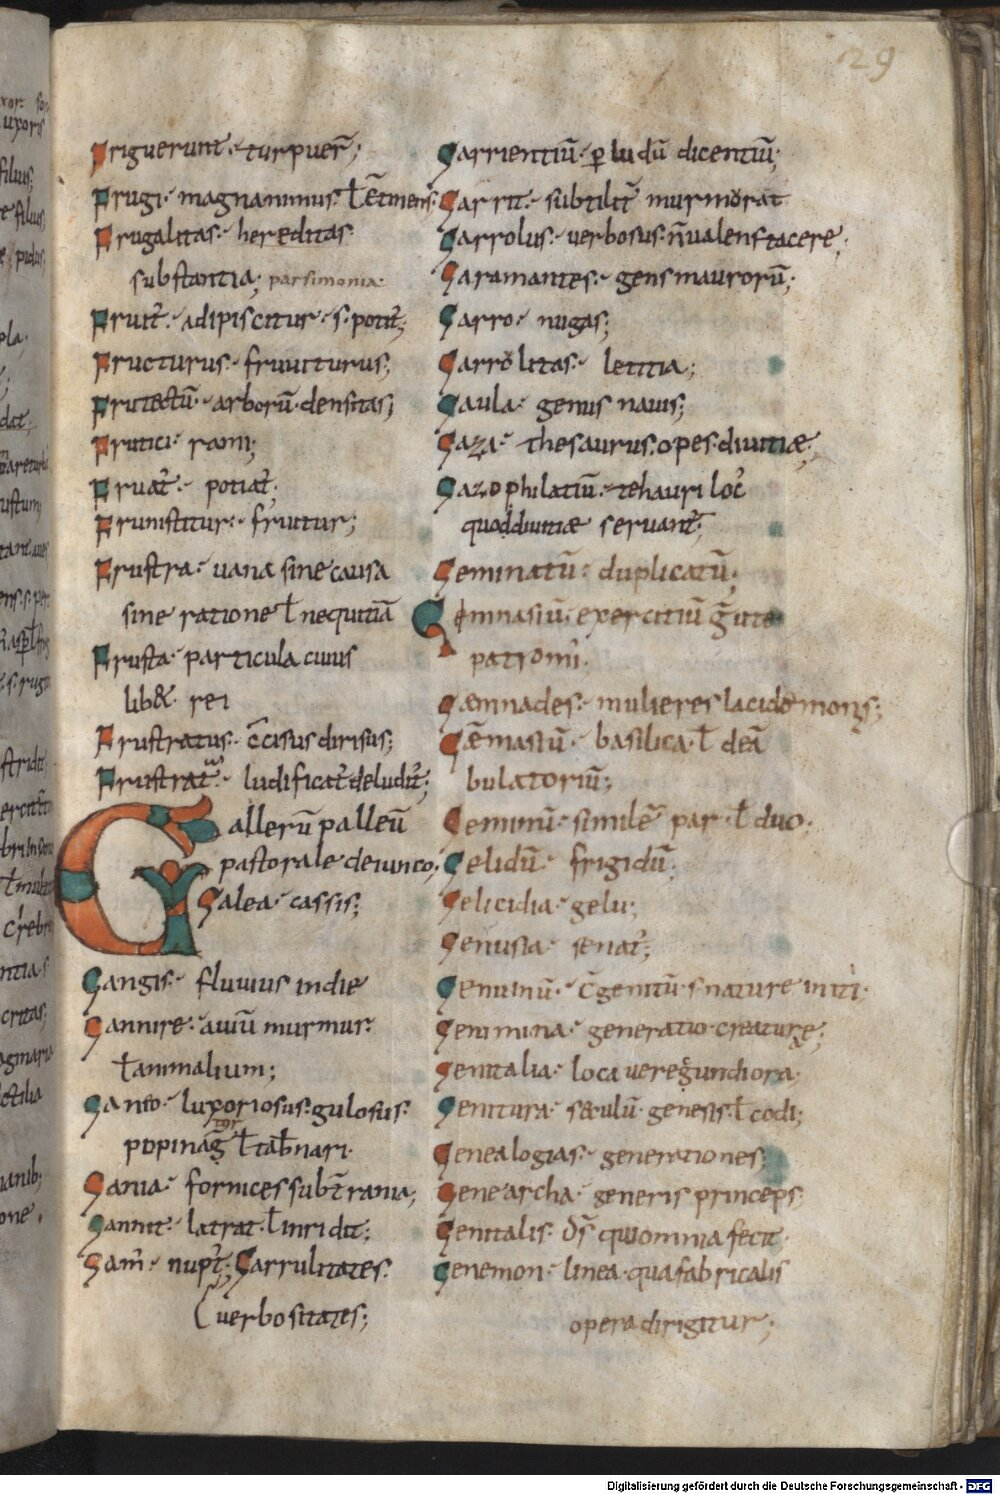 29
Friguerunt· turpuer̄;
Frugi· magnanimus ł
Frugalitas· hereditas·
substantia; parsimonia·
Fruit̄· adipiscitur· s· potit̄;
Fructurus· fruiturus;
arborū· densitas;
Frutici· rami;
Fruat̄· potiat̄;
Frunistitur· fruitur;
Frustra· uana sine causa
sine ratione ł nequitiā
Frusta· particula cuius
lib&· rei
Frustratus· dirisus;
ludificat̄ deludit̄;
Gallerū palleū
pastorale deiunco;
Galea· cassis;
Gangis· fluuius indie
Gannire· auiū murmur·
ł animalium;
Ganeo· luxoriosus· gulosus·
ł
Gania· fornices subt̄rania;
Gannit· latrat· ł inridit;
Garrulitates·
uerbositates;
Garrientiū· ꝑ ludū dicentiū;
Garrit· subtilit̄ murmorat
Garrolus· uerbosus· n̄ualens tacere;
Garamantes· gens maurorū;
Garro· nugas;
Garrolitas· letitia;
Gaula· genus nauis;
Gaza· thesaurus· opes diuitiæ;
Gazophilatiū· tehauri loc̄
quod diuitiæ seruant̄;
Geminatū· duplicatū;
exercitiū
mulieres
basilica· ł deā
bulatoriū;
Geminū· similē par· ł duo·
Gelidū· frigidū;
Gelicidia· gelu;
Genusia· senat̄;
Genuinū· c̄genitū· s· nature
Genimina· generatio creature;
Genitalia· loca
Genitura· genesis· ł
Genealogias· generationes;
Genearcha· generis princeps;
Genitalis· ds̄ qui omnia fecit·
Genemon· linea· qua fabricalis
opera dirigitur;
Digitalisierung gefördert durch die Deutsche Forschungsgemeinschaft - DFG